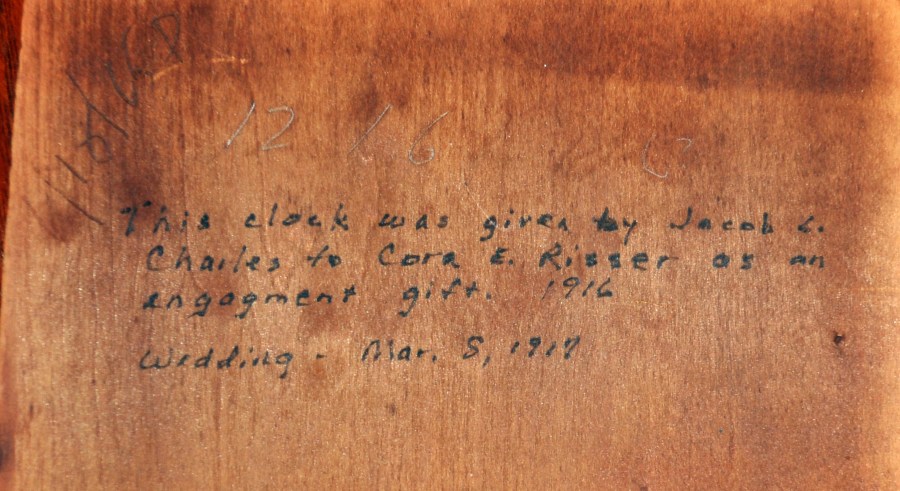 12 16
This clock was given by Jacob L.
Charles to Cora E. Risser as an
engagment gift. 1916
Wedding - Mar. 8, 1917